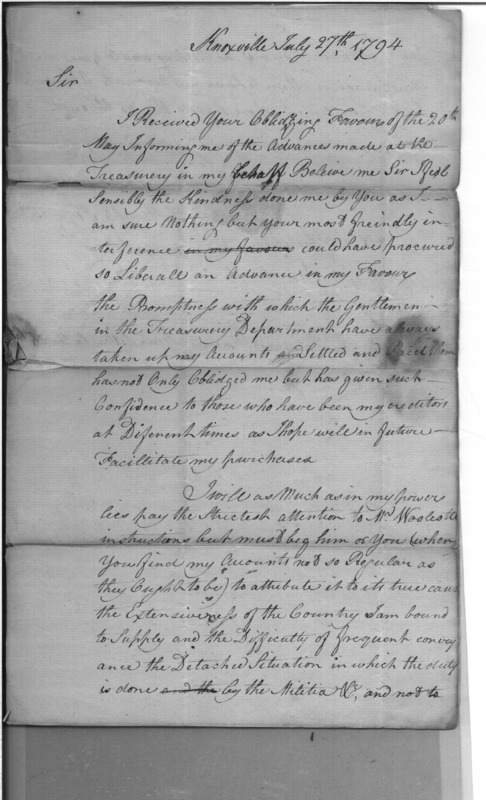 Knoxville July 27th, 1794
Sir
I Received Your Oblidging Favour of the 20th
May Informing me of the Advances made at the
Treasurery in my behalf Beleive me Sir I feel
Sensibly the Kindness done me by You as I
am sure Nothing but your most freindly in-
terference in my favour could have procured
so Liberall an Advance in my Favour
the Promptness with which the Gentlemen
in the Treasurery Department have always
taken up my Accounts and Settled and Paied them
has not Only Oblidged me but has given such
Confidence to those who have been my creditors
at Diferent times as I hope will in future
Facillitate my purchases
I will as Much as in my power
lies pay the Strictest attention to Mr. Woolcotts
instructions but must beg him or You (when
You find my Accounts not so Regular as
they Ought to be) to attribute it to its true cause
the Extensiveness of the Country I am bound
to Supply and the Difficulty of frequent convey
ance the Detached Situation in which the duty
is done and the by the Militia &c, and not to